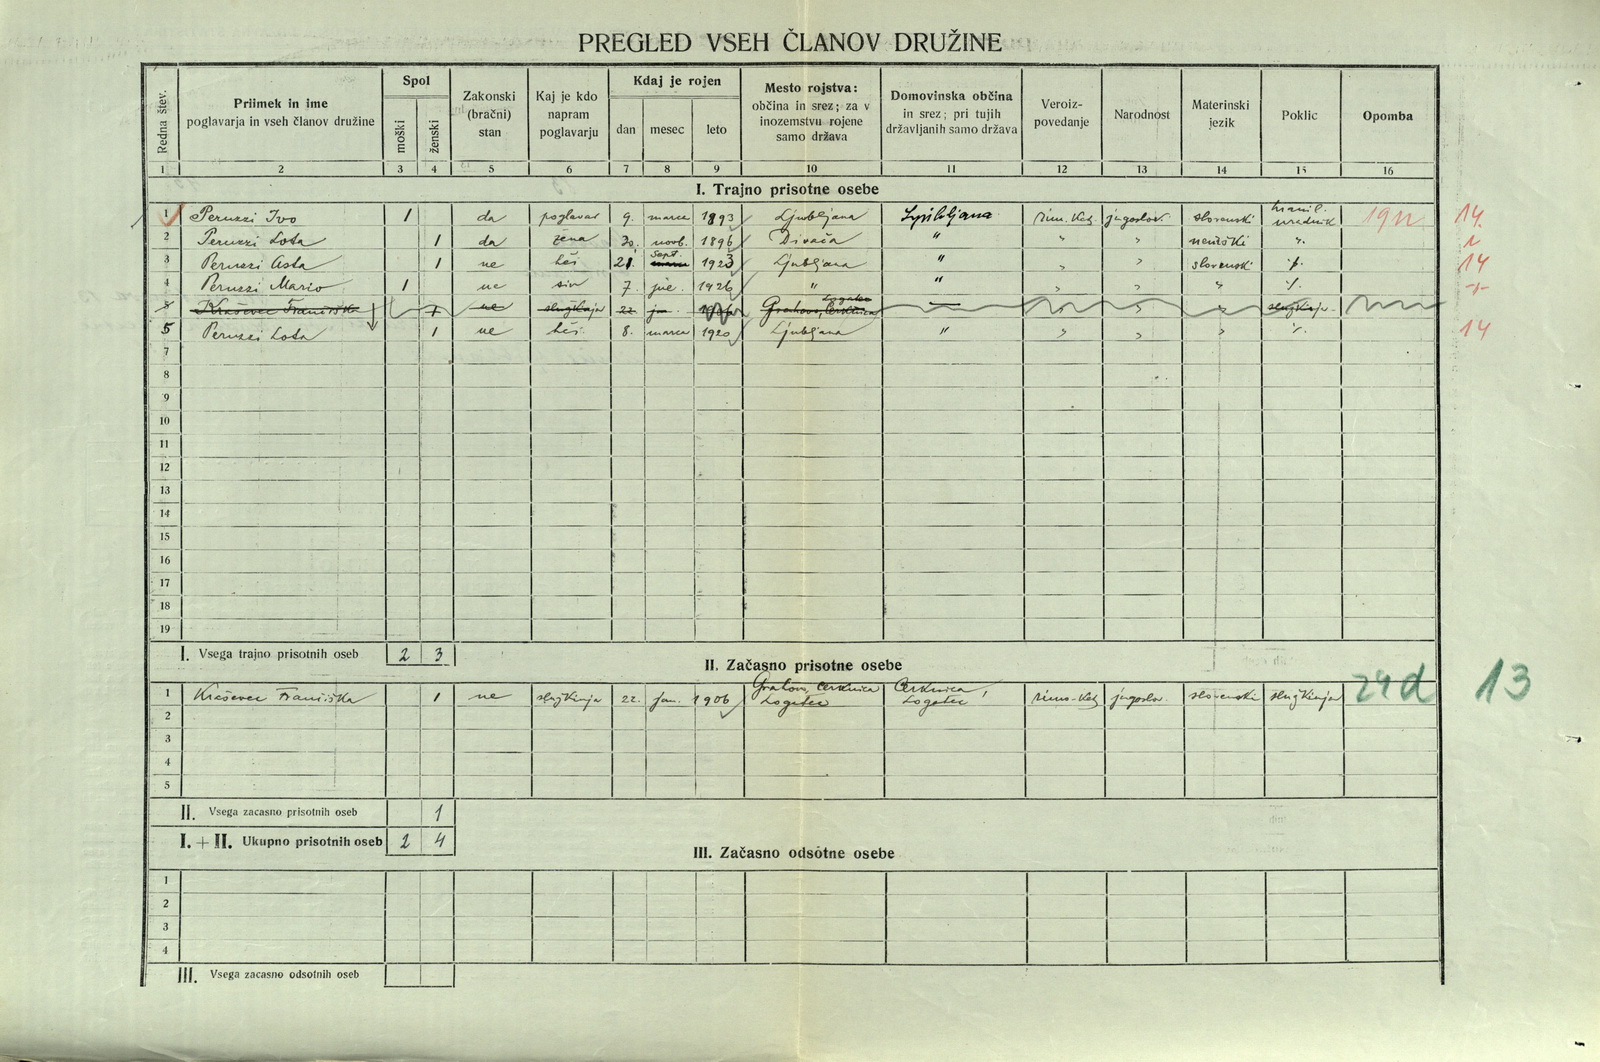 PREGLED VSEH ČLANOV DRUŽINE
Redna štev.
Priimek in ime
poglavarja in vseh članov družine
Spol
moški
ženski
Zakonski
(bračni)
stan
Kaj je kdo
napram
poglavarju
Kdaj je rojen
dan mesec leto
Mesto rojstva:
občina in srez; za v
inozemstvu rojene
samo država
Domovinska občina
in srez; pri tujih
državljanih samo država
Veroiz-
povedanje
Narodnost
Materinski
jezik
Poklic
Opomba
1 2 3 4 5 6 7 8 9 10 11 12 13 14 15 16
I. Trajno prisotne osebe
1 Peruzzi Ivo 1 da poglavar 9. marca 1893 Ljubljana Ljubljana rim. kat. jugoslov. slovenski hranil. uradnik 14.
2 Peruzzi Lota 1 da žena 30. novb. 1896 Divača " " " nemški
3 Peruzzi Asta 1 ne hči 21. sept. 1923 Ljubljana " " " slovenski 14
4 Peruzzi Mario 1 ne sin 7. 1926 " " " " "
5 Kraševec Frančiška 1 ne služkinja 22. jan. 1906 Grahovo, Cerknica Logatec služkinja
5 Peruzzi Lota 1 ne hči 8. marca 1920 Ljubljana " " " " 14
7
8
9
10
11
12
13
14
15
16
17
18
19
I. Vsega trajno prisotnih oseb 2 3
II. Začasno prisotne osebe
1 Kraševec Frančiška 1 ne služkinja 22. jan. 1906 Grahovo, Cerknica Logatec Cerknica, Logatec rimo-kat. jugoslov. slovenski služkinja 24 d 13
2
3
4
5
II. Vsega zacasno prisotnih oseb 1
I. + II. Ukupno prisotnih oseb 2 4
III. Začasno odsotne osebe
1
2
3
4
III. Vsega zacasno odsotnih oseb